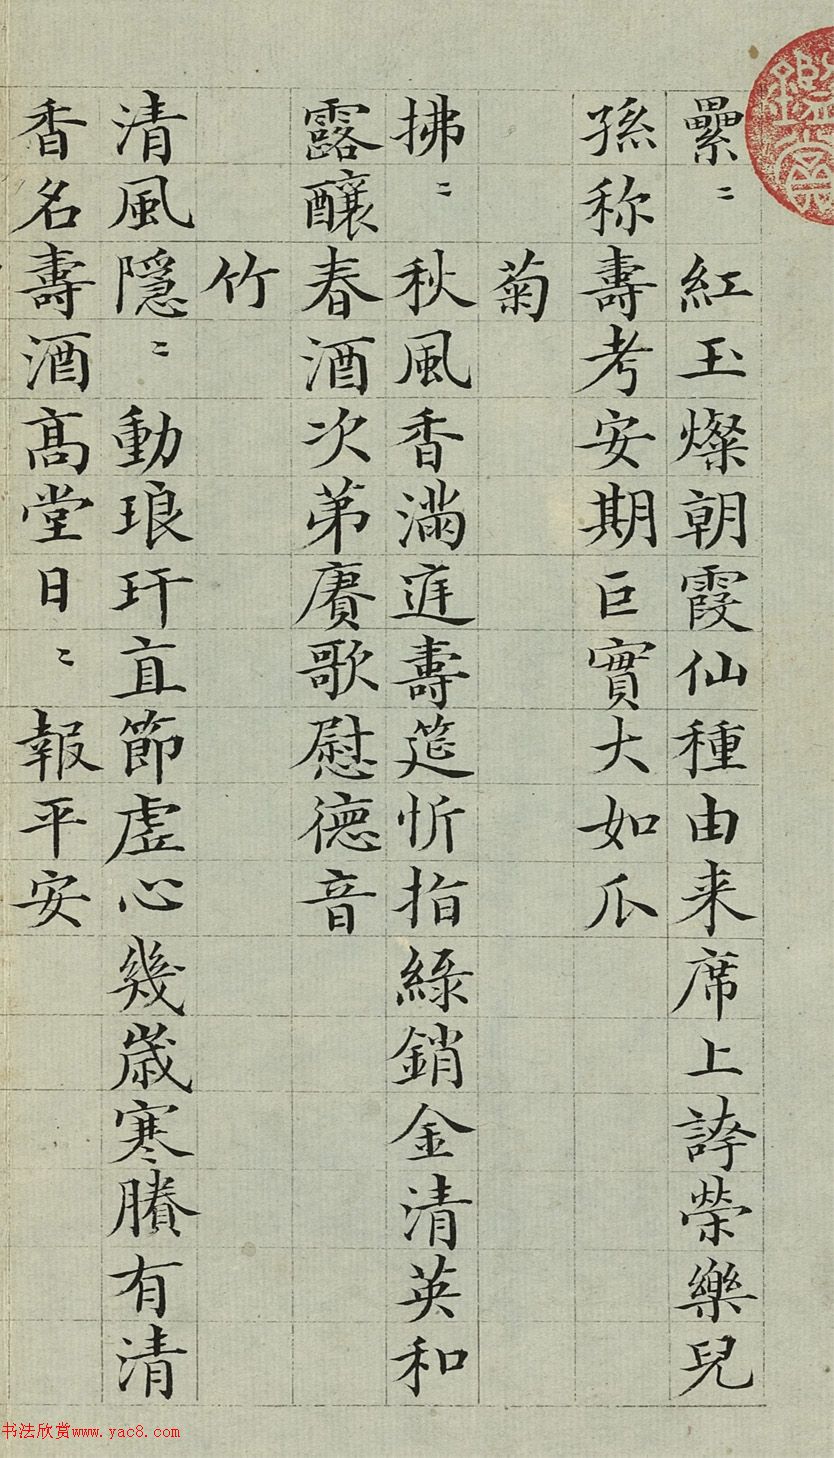 纍〻紅玉燦朝霞仙種由来席上誇榮樂兒
孫称壽考安期巨實大如瓜
菊
拂〻秋風香滿庭壽筵忻指綠銷金清英和
露釀春酒次第賡歌慰德音
竹
清風隱〻動琅玕直節虛心幾歲寒賸有清
香名壽酒髙堂日〻報平安
书法欣赏www.yac8.com